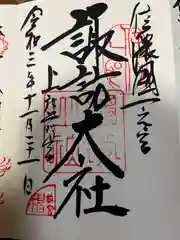 信濃國一之宮
諏訪大社
上社前宮
令和二年十一月二十一日